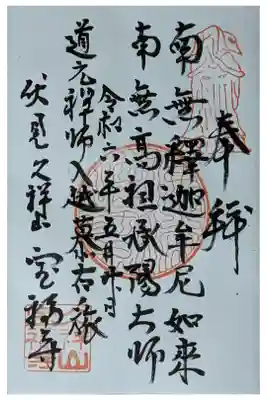 奉拜
南無釋迦牟尼如来
南無高祖承陽大師
令和六年五月日
道元禅師入越慕古旅
伏見久祥山
宝福寺